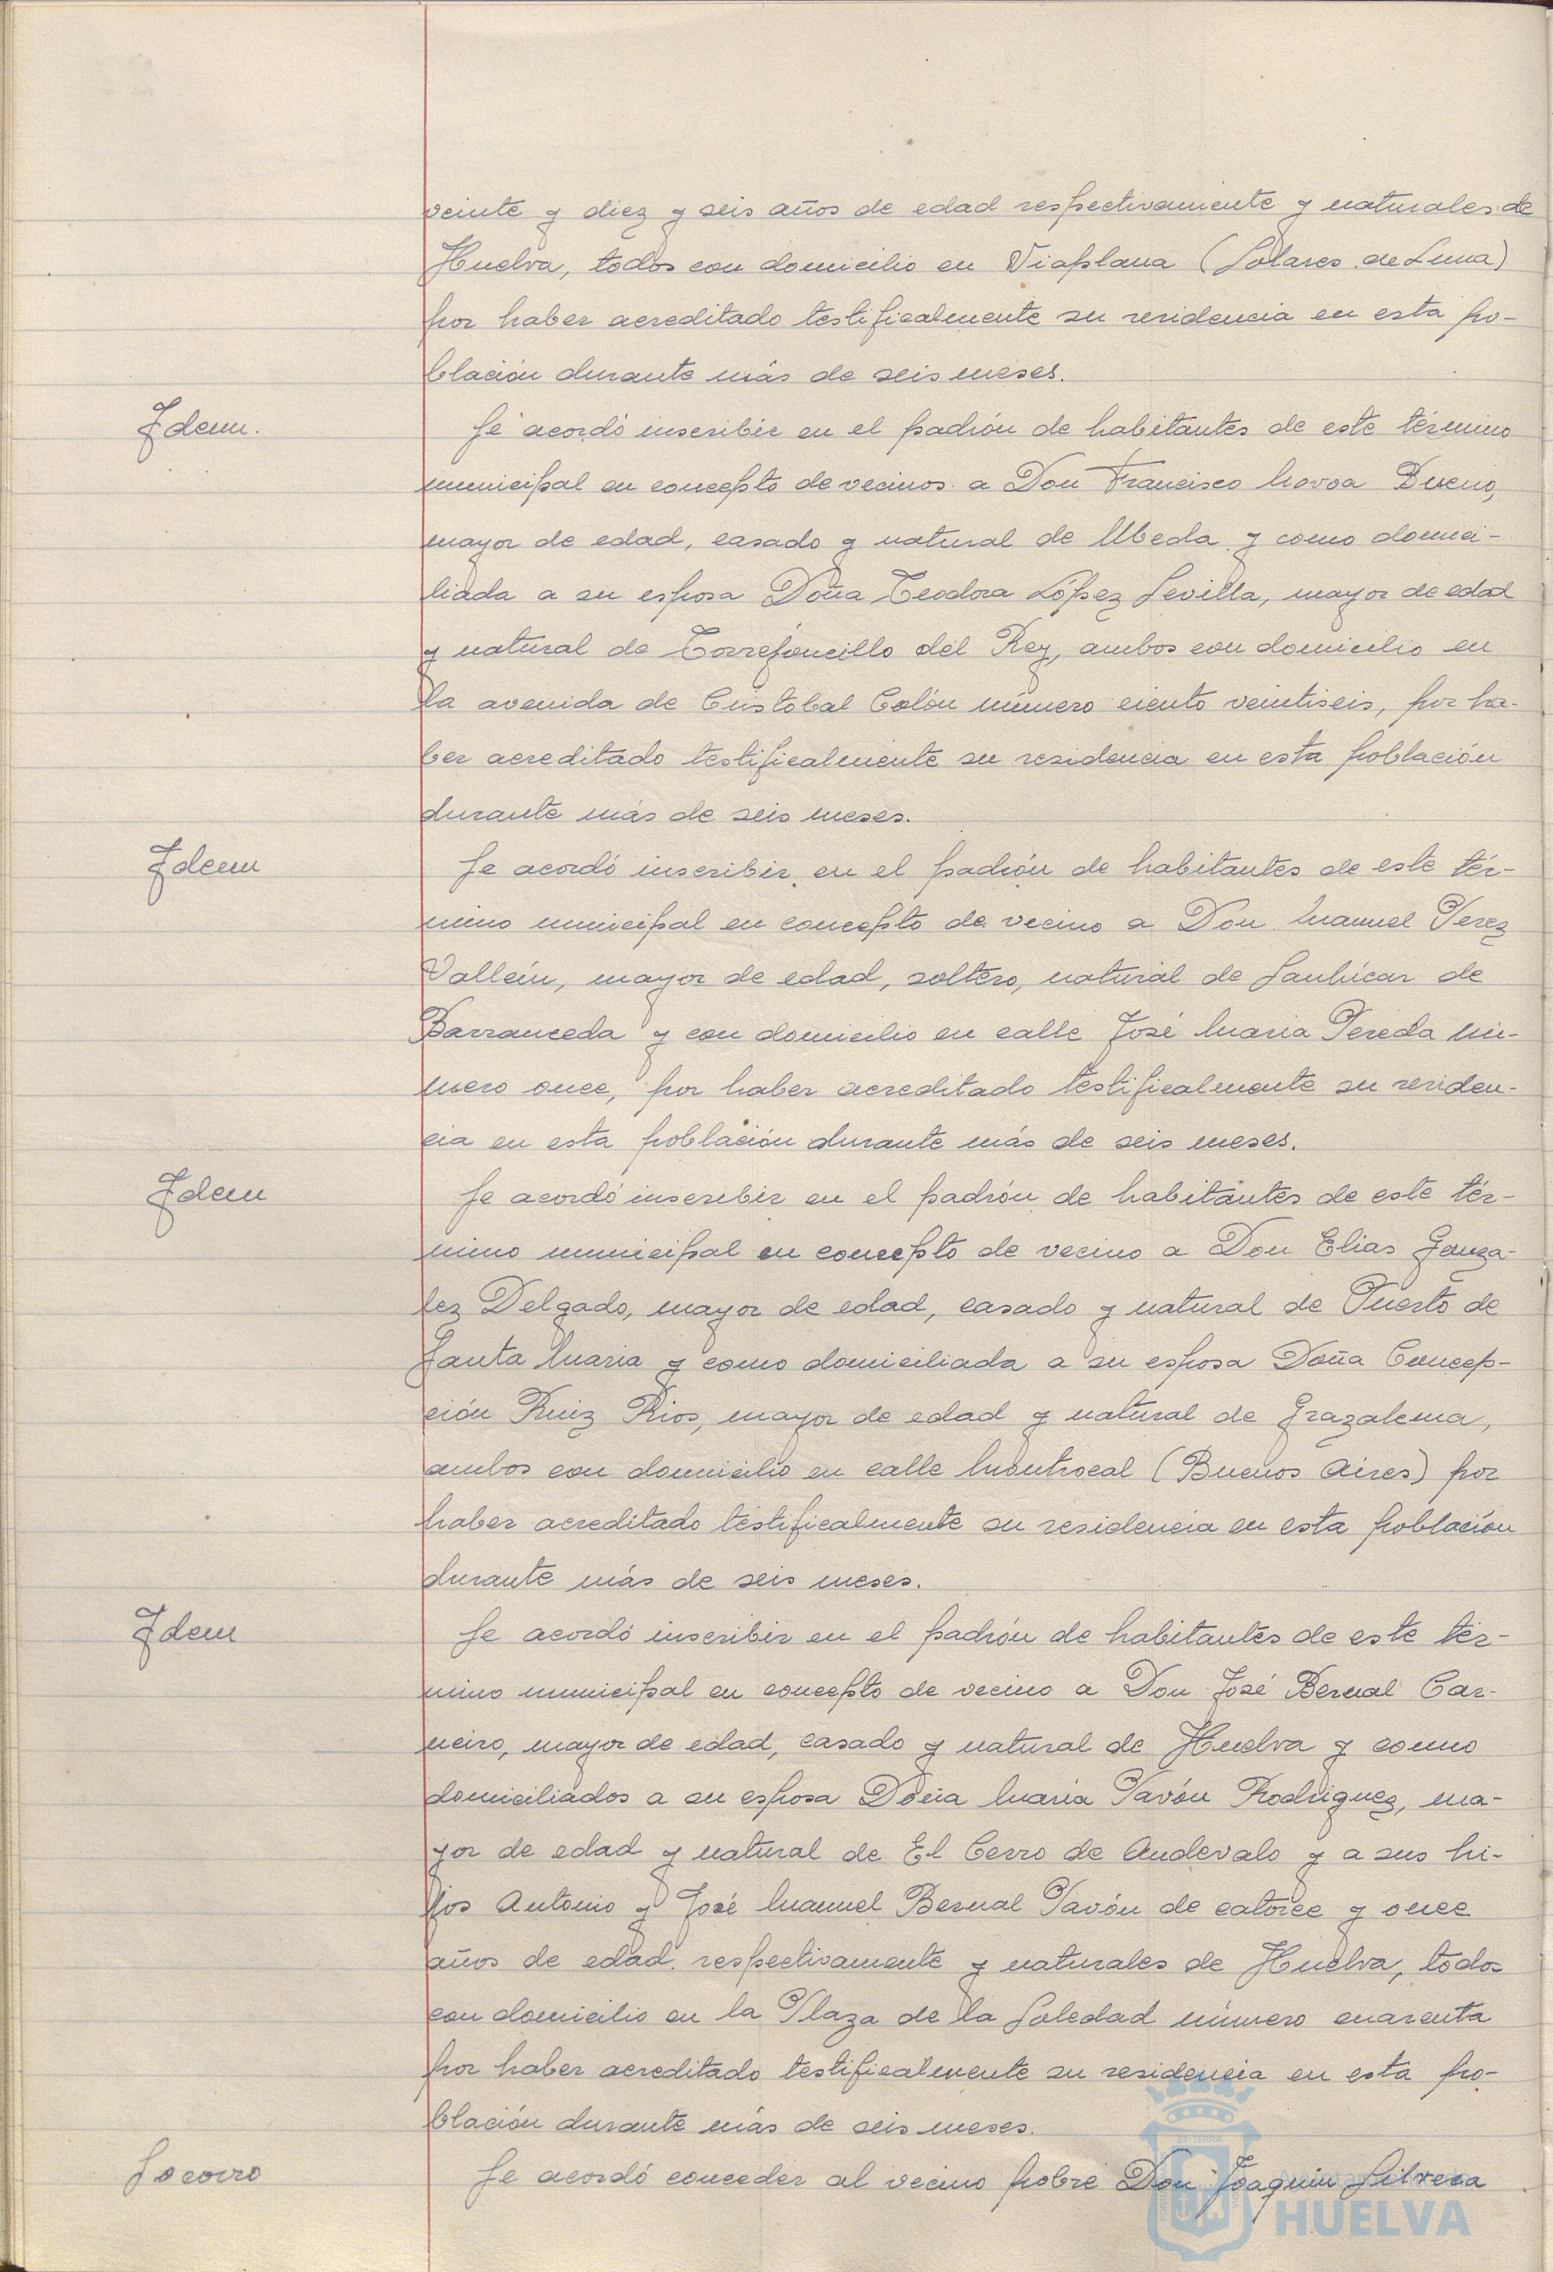 veinte y diez y seis años de edad respectivamente y naturales de
Huelva, todos con domicilio en Viaplana (Solares de Luna)
por haber acreditado testificalmente su residencia en esta po-
blación durante más de seis meses.
Idem.
Se acordó inscribir en el padrón de habitantes de este término
municipal en concepto de vecinos a Don Francisco Novoa Bueno,
mayor de edad, casado y natural de Ubeda y como domici-
liada a su esposa Doña Teodora López Sevilla, mayor de edad
y natural de Torrejoncillo del Rey, ambos con domicilio en
la avenida de Cristobal Colón número ciento veintiseis, por ha-
ber acreditado testificalmente su residencia en esta población
durante más de seis meses.
Idem
Se acordó inscribir en el padrón de habitantes de este tér-
mino municipal en concepto de vecino a Don Manuel Perez
Vallein, mayor de edad, soltero, natural de Sanlúcar de
Barrameda y con domicilio en calle José Maria Pereda nú-
mero once, por haber acreditado testificalmente su residen-
cia en esta población durante más de seis meses.
Idem
Se acordó inscribir en el padrón de habitantes de este tér-
mino municipal en concepto de vecino a Don Elias Gonza-
lez Delgado, mayor de edad, casado y natural de Puerto de
Santa Maria y como domiciliada a su esposa Doña Concep-
ción Ruiz Rios, mayor de edad y natural de Grazalema,
ambos con domicilio en calle Montrocal (Buenos Aires) por
haber acreditado testificalmente su residencia en esta población
durante más de seis meses.
Idem
Se acordó inscribir en el padrón de habitantes de este tér-
mino municipal en concepto de vecino a Don José Bernal Car-
neiro, mayor de edad, casado y natural de Huelva y como
domiciliados a su esposa Doña Maria Pavón Rodriguez, ma-
yor de edad y natural de El Cerro de Andevalo y a sus hi-
jos Antonio y José Manuel Bernal Pavón de catorce y once
años de edad respectivamente y naturales de Huelva, todos
con domicilio en la Plaza de la Soledad número cuarenta
por haber acreditado testificalmente su residencia en esta po-
blación durante más de seis meses.
Socorro
Se acordó conceder al vecino pobre Don Joaquin Silvera
HUELVA